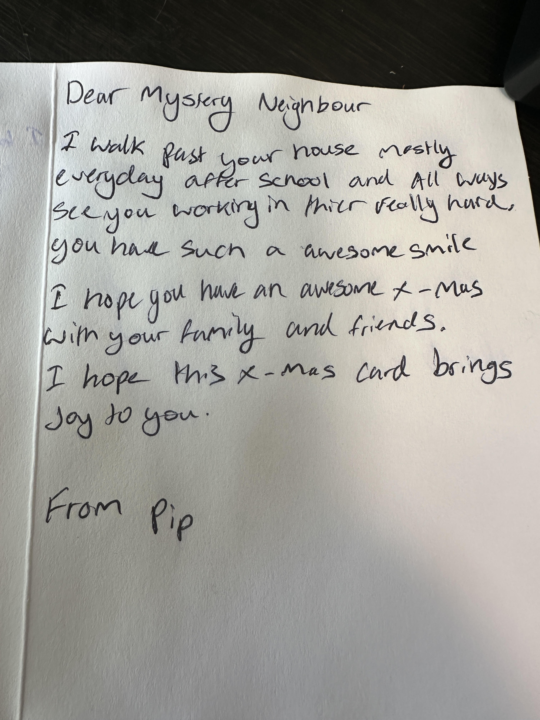 Dear Mystery Neighbour
I walk past your house mostly
everyday after school and All ways
see you working in thier really hard,
you have such a awesome smile
I hope you have an awesome x-mas
with your family and friends.
I hope this x-mas card brings
Joy to you.
From Pip